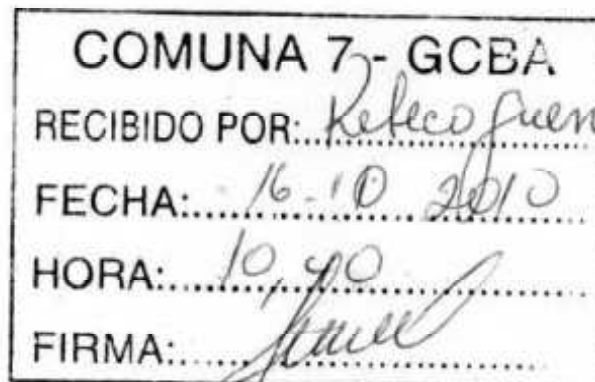 COMUNA 7 - GCBA
RECIBIDO POR: Rebeco
FECHA: 16.10 2010
HORA: 10,40
FIRMA: